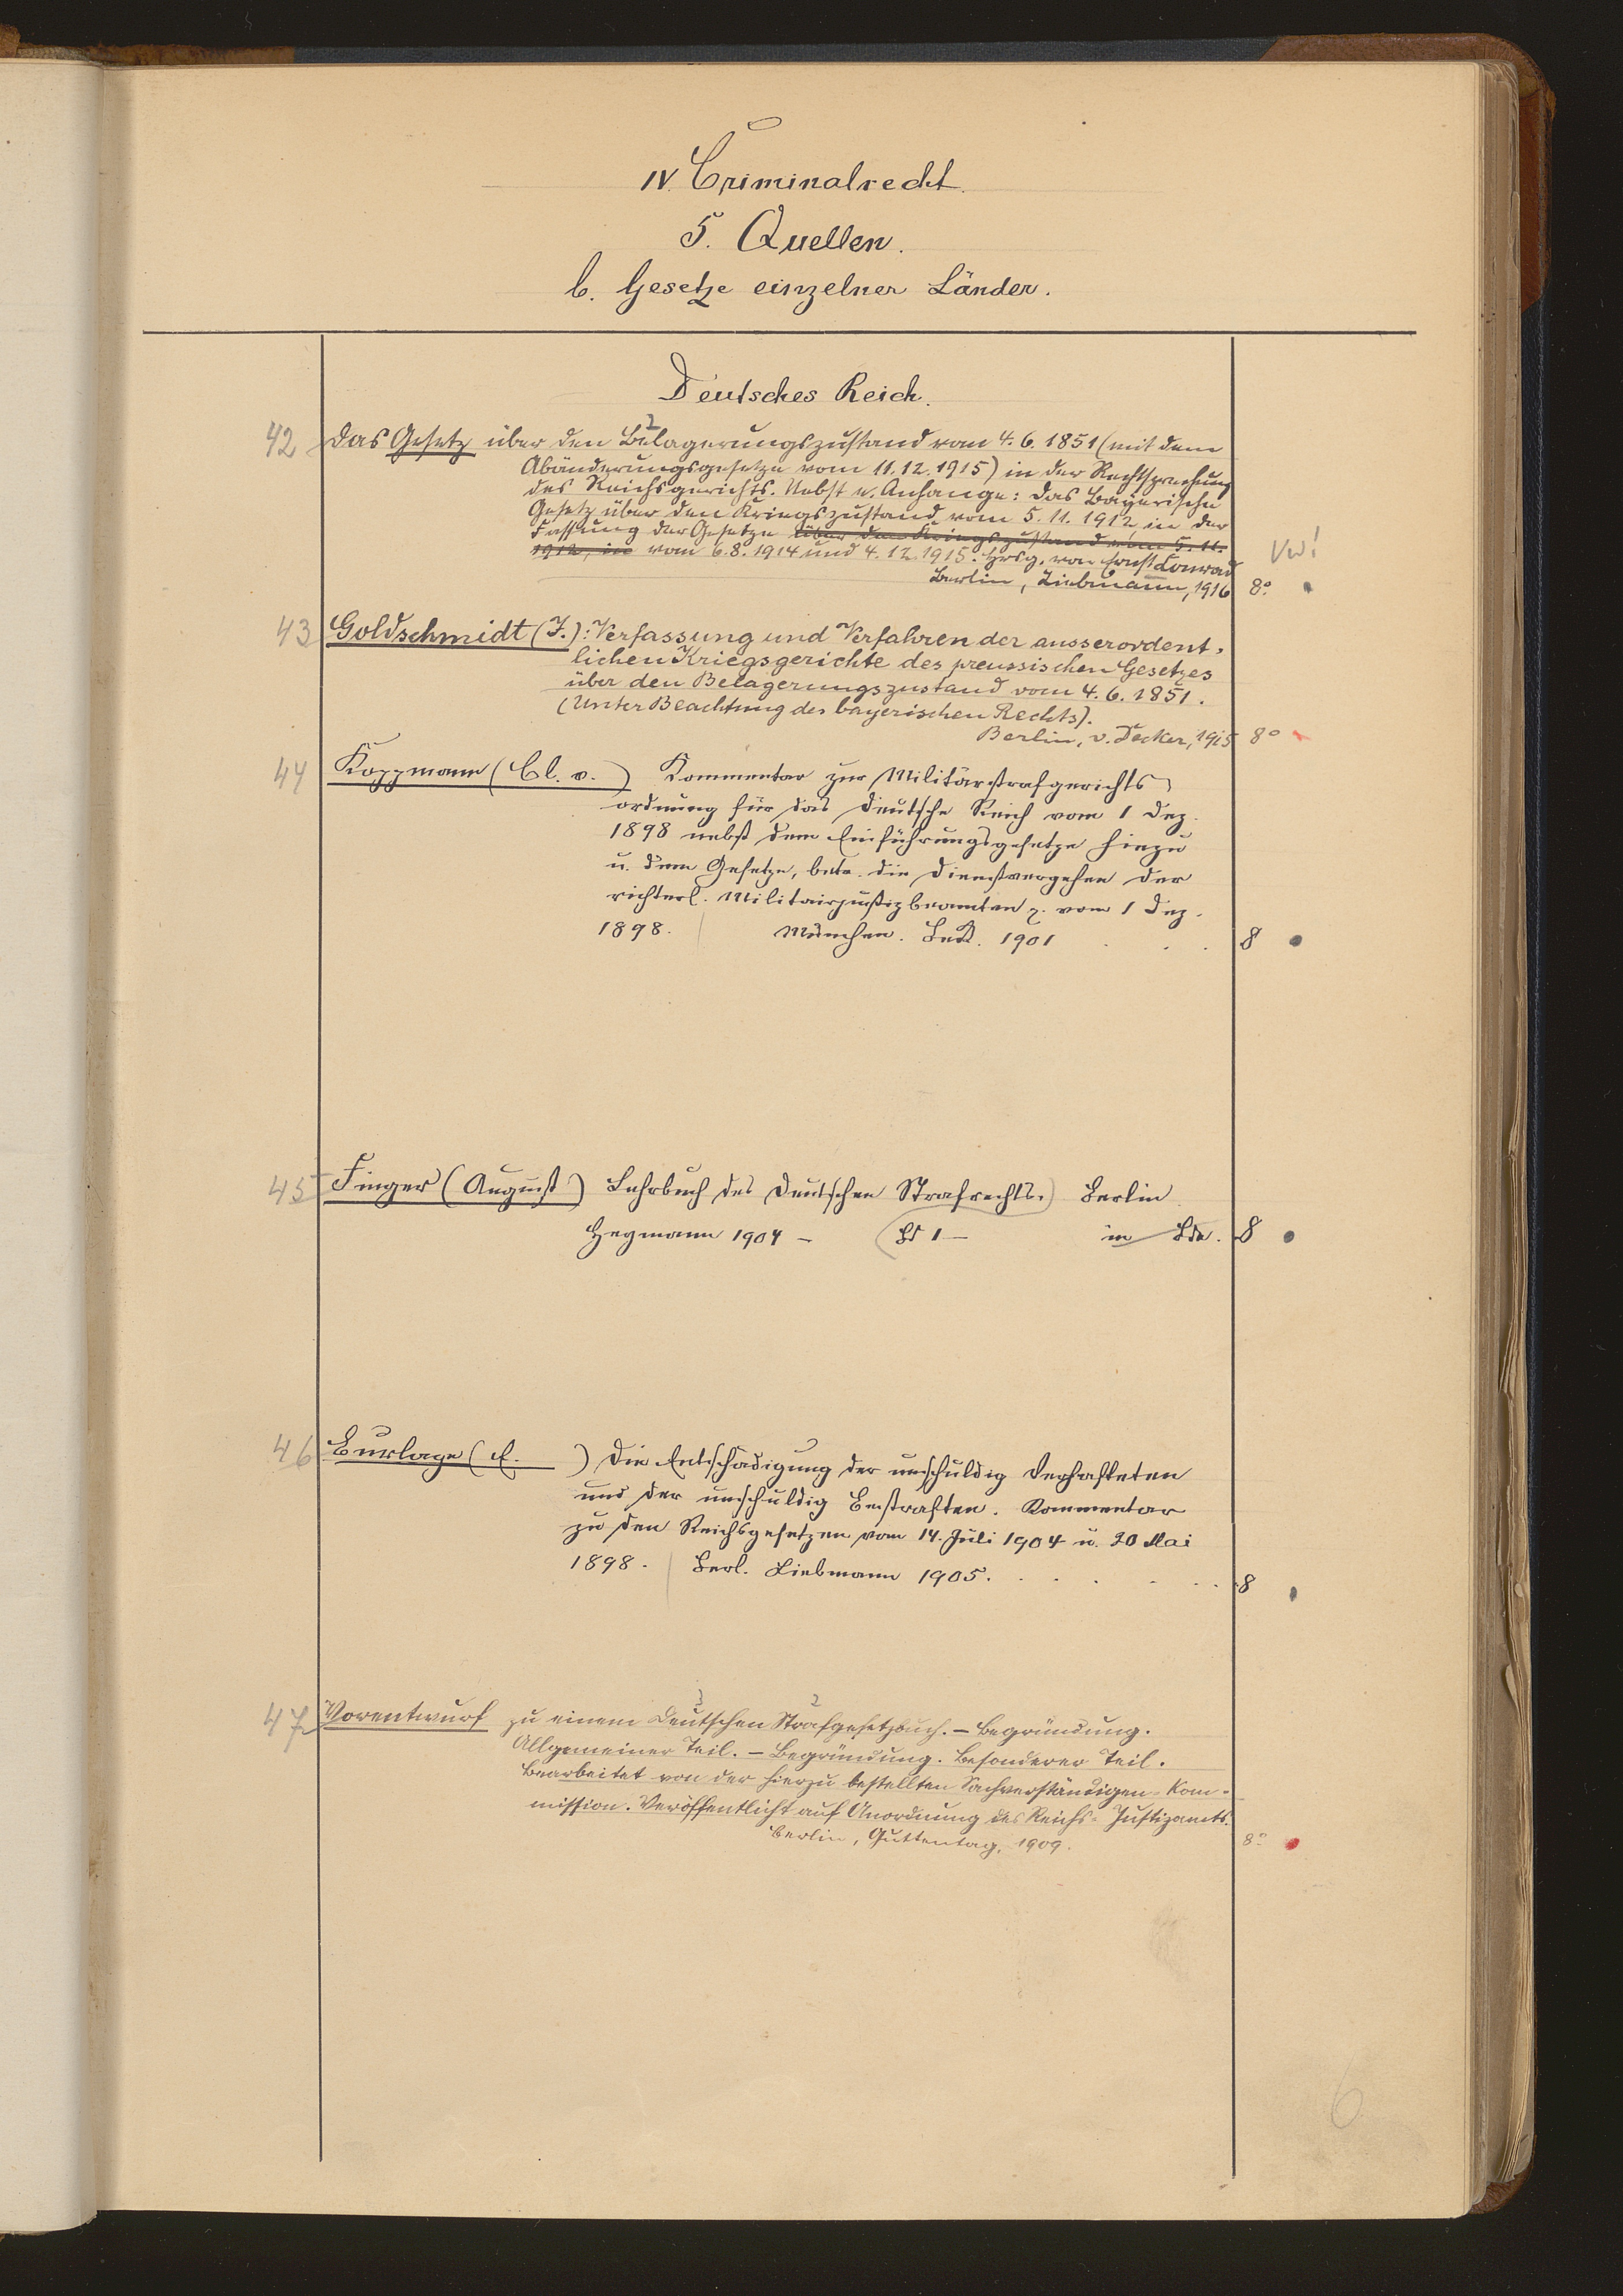 IV. Criminalrecht.
5. Quellen.
b. Gesetze einzelner Länder.
Deutsches Reich.
42 Das Gesetz über den Belagerungszustand vom 4.6.1851 (mit dem
Abänderungsgesetze vom 11.12.1915) in der Rechtsprechung
des Reichsgerichts. Nebst e. Anhange: Das Bayerische
Gesetz über den Kriegszustand vom 5.11.1912 in der
Fassung der Gesetze über den Kriegszustand vom 5.11.
1912, in vom 6.8.1914 und 4.12.1915. Hrsg. von Ernst Conrad
Vw!
Berlin, Liebmann, 1916 8°.
43 Goldschmidt (J.): Verfassung und Verfahren der ausserordent-
lichen Kriegsgerichte des preussischen Gesetzes
über den Belagerungszustand vom 4.6.1851.
(Unter Beachtung des bayerischen Rechts).
Berlin, v. Decker, 1915 8°
44 Koppmann (Cl. v. ) Kommentar zur Militärstrafgerichts
ordnung für das Deutsche Reich vom 1 Dez.
1898 nebst dem Einführungsgesetze hiezu
u. dem Gesetze, betr. die Dienstvergehen der
richterl. Militairjustizbeamten z. vom 1 Dez.
1898. München. Beck. 1901 . . . 8
45 Finger (August) Lehrbuch des Deutschen Strafrechts. Berlin
Heymann 1904 – Bd 1 – in Bde. 8
46 Burlage (E. ) Die Entschädigung der unschuldig Verhafteten
und der unschuldig Bestraften. Kommentar
zu den Reichsgesetzen vom 14. Juli 1904 u. 20 Mai
1898. Berl. Liebmann 1905. . . . . . . 8
47 Vorentwurf zu einem Deutschen Strafgesetzbuch. – Begründung.
Allgemeiner Teil. – Begründung. Besonderer Teil.
Bearbeitet von der hierzu bestellten Sachverständigen-Kom-
mission. Veröffentlicht auf Anordnung des Reichs-Justizamts.
Berlin, Guttentag, 1909. 8°.
6